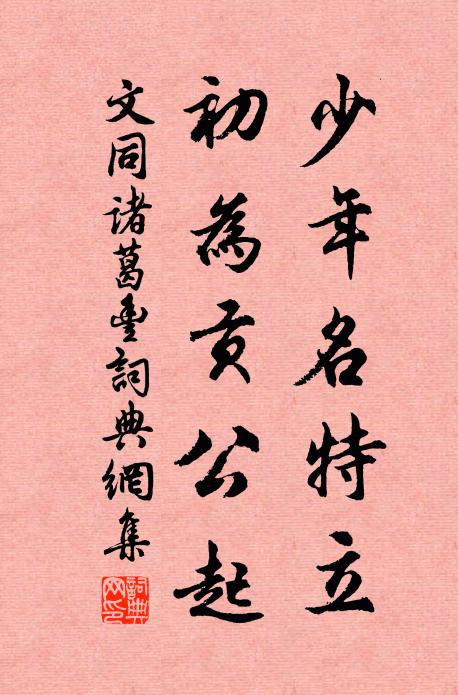 少年名特立
初為貢公起
文同諸葛豐詞典網集
詞典網印